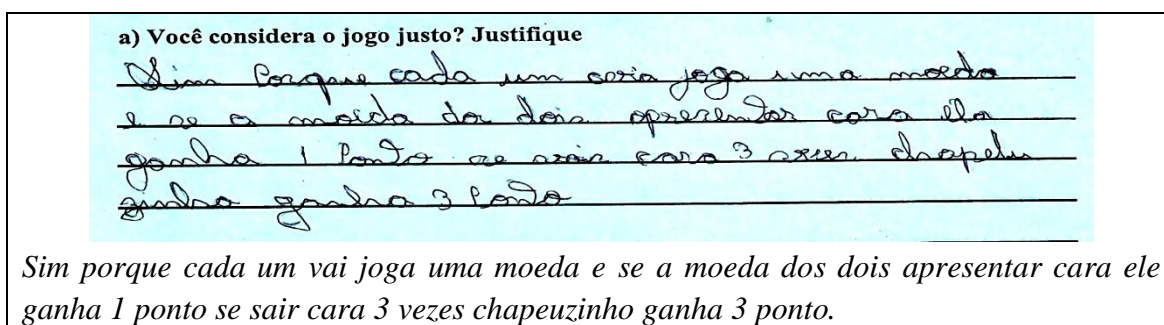 a) Você considera o jogo justo? Justifique
Sim Porque cada um joga uma moeda
e se a moeda dos dois apresentar cara ele
ganha 1 Ponto se sair cara 3 chapeu
zinho ganha 3 Ponto
Sim porque cada um vai joga uma moeda e se a moeda dos dois apresentar cara ele
ganha 1 ponto se sair cara 3 vezes chapeuzinho ganha 3 ponto.